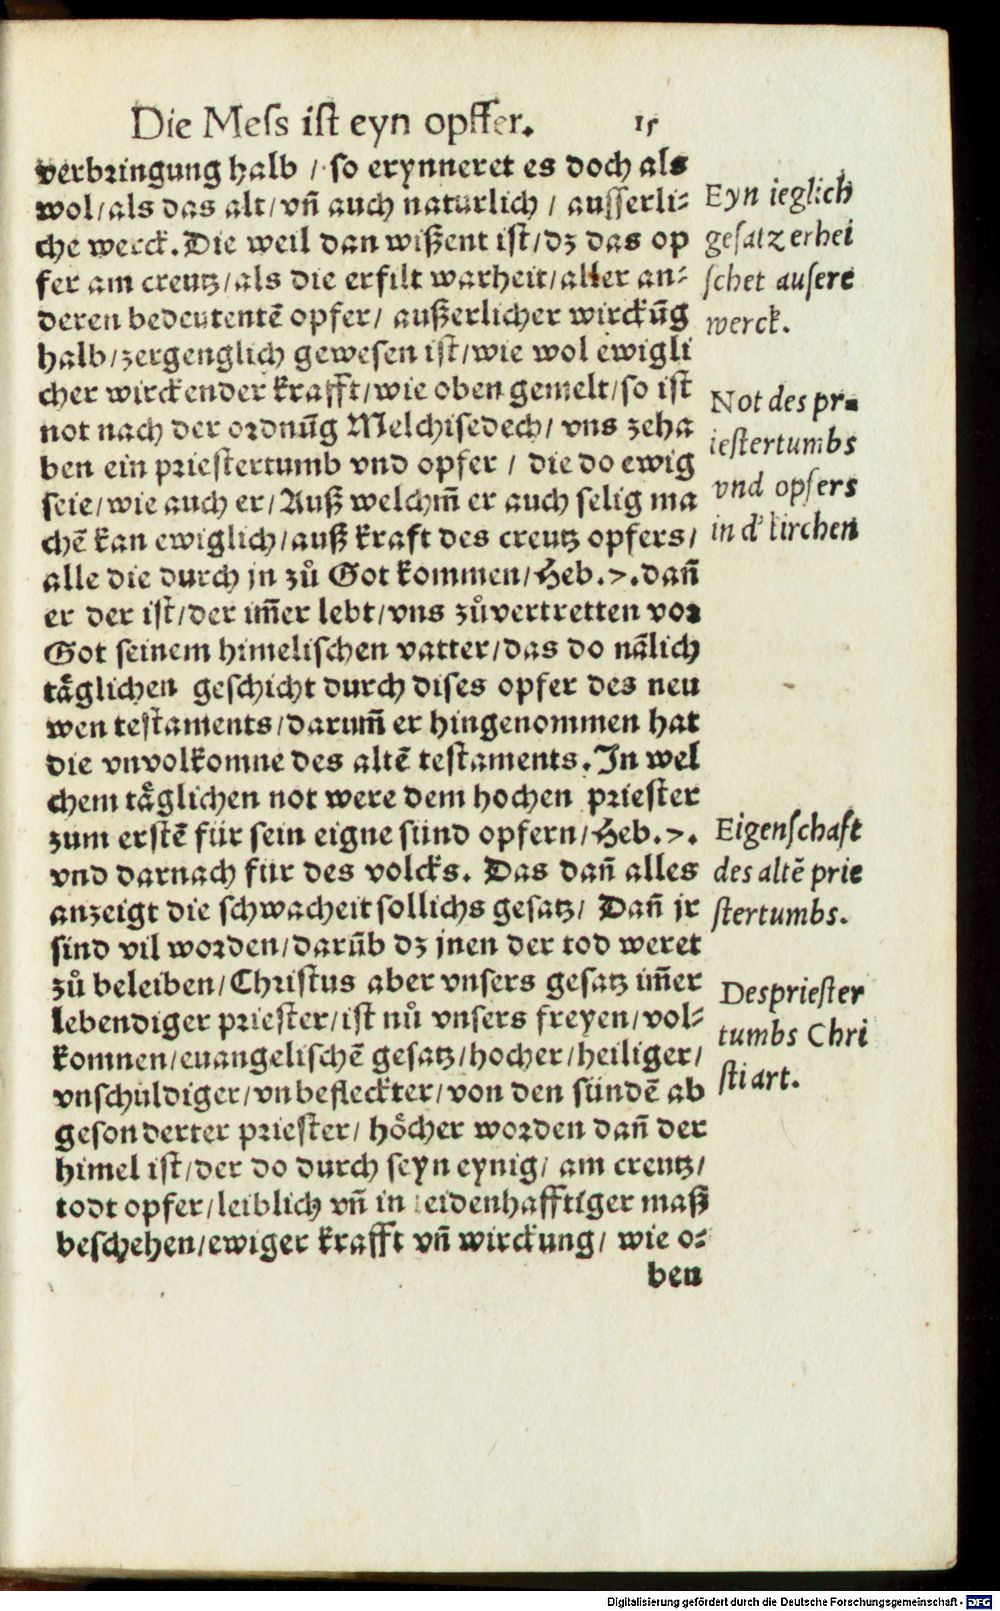 Die Mess ist eyn opffer. 15
verbringung halb / so erynneret es doch als
wol/als das alt/vn̄ auch naturlich / ausserli⸗
che werck. Die weil dan wißent ist/dz das op
fer am creutz/als die erfilt warheit/aller an⸗
deren bedeutentē opfer/ außerlicher wirckūg
halb/zergenglich gewesen ist/wie wol ewigli
cher wirckender krafft/wie oben gemelt/so ist
not nach der ordnūg Melchisedech/ vns zeha
ben ein priestertumb vnd opfer / die do ewig
seie/wie auch er/Auß welchm̄ er auch selig ma
chē kan ewiglich/auß kraft des creutz opfers/
alle die durch jn zů Got kommen/Heb.7.dan̄
er der ist/der im̄er lebt/vns zůvertretten vor
Got seinem himelischen vatter/das do nālich
tåglichen geschicht durch dises opfer des neu
wen testaments/darum̄ er hingenommen hat
die vnvolkomne des altē testaments. In wel
chem tåglichen not were dem hochen priester
zum erstē für sein eigne sünd opfern/Heb.7.
vnd darnach für des volcks. Das dan̄ alles
anzeigt die schwacheit sollichs gesatz/ Dan̄ jr
sind vil worden/darūb dz jnen der tod weret
zů beleiben/Christus aber vnsers gesatz im̄er
lebendiger priester/ist nů vnsers freyen/vol⸗
komnen/euangelischē gesatz/hocher/heiliger/
vnschuldiger/vnbefleckter/von den sündē ab
gesonderter priester/ höcher worden dan̄ der
himel ist/der do durch seyn eynig/ am creutz/
todt opfer/leiblich vn̄ in leidenhafftiger maß
beschehen/ewiger krafft vn̄ wirckung/ wie o⸗
ben
Eyn ieglich
gesatz erhei
schet ausere
werck.
Not des pr⸗
iestertumbs
vnd opfers
in d' kirchen
Eigenschaft
des altē prie
stertumbs.
Des priester
tumbs Chri
sti art.
Digitalisierung gefördert durch die Deutsche Forschungsgemeinschaft - DFG